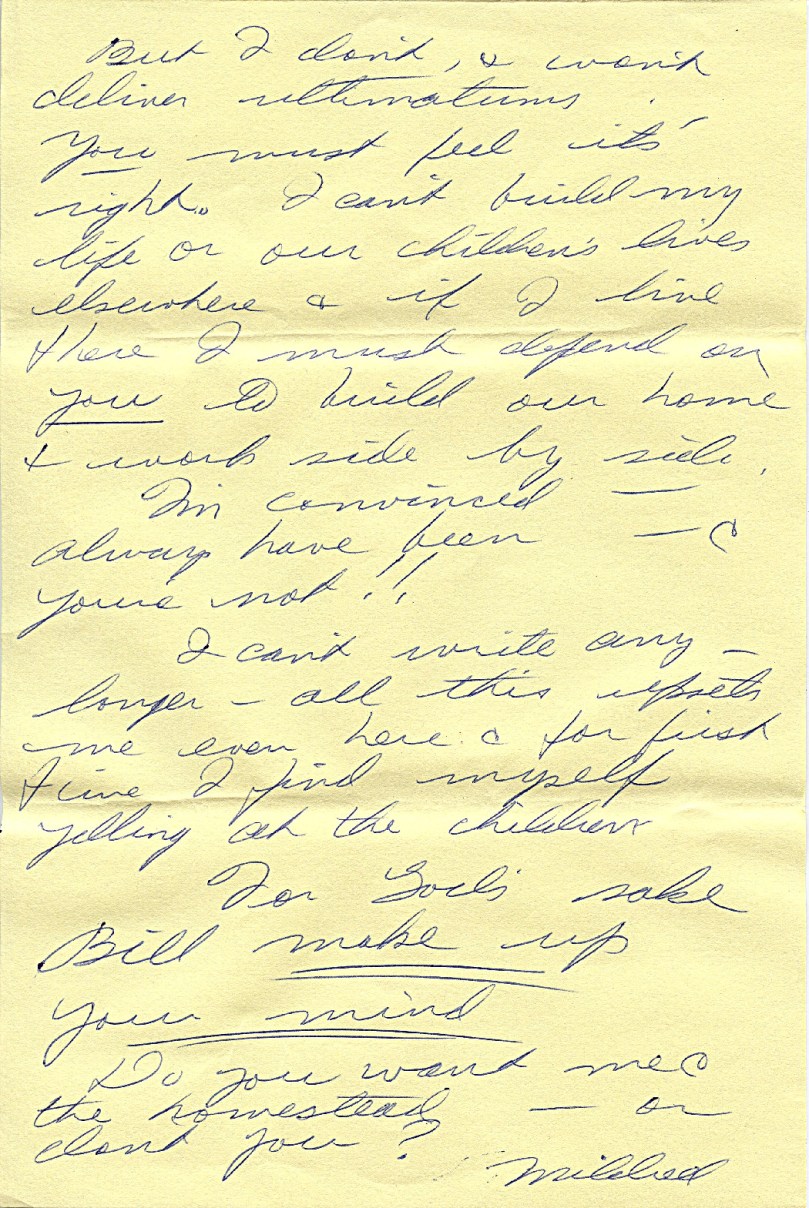 But I don't, & won't
deliver ultimatums.
You must feel it's
right. I can't build my
life or our children's lives
elsewhere & if I live
there I must depend on
you to build our home
& work side by side.
I'm convinced —
always have been — &
you're not!!
I can't write any-
longer - all this upsets
me even here & for first
time I find myself
yelling at the children
For God's sake
Bill make up
your mind
Do you want me &
the homestead — or
dont you?
Mildred